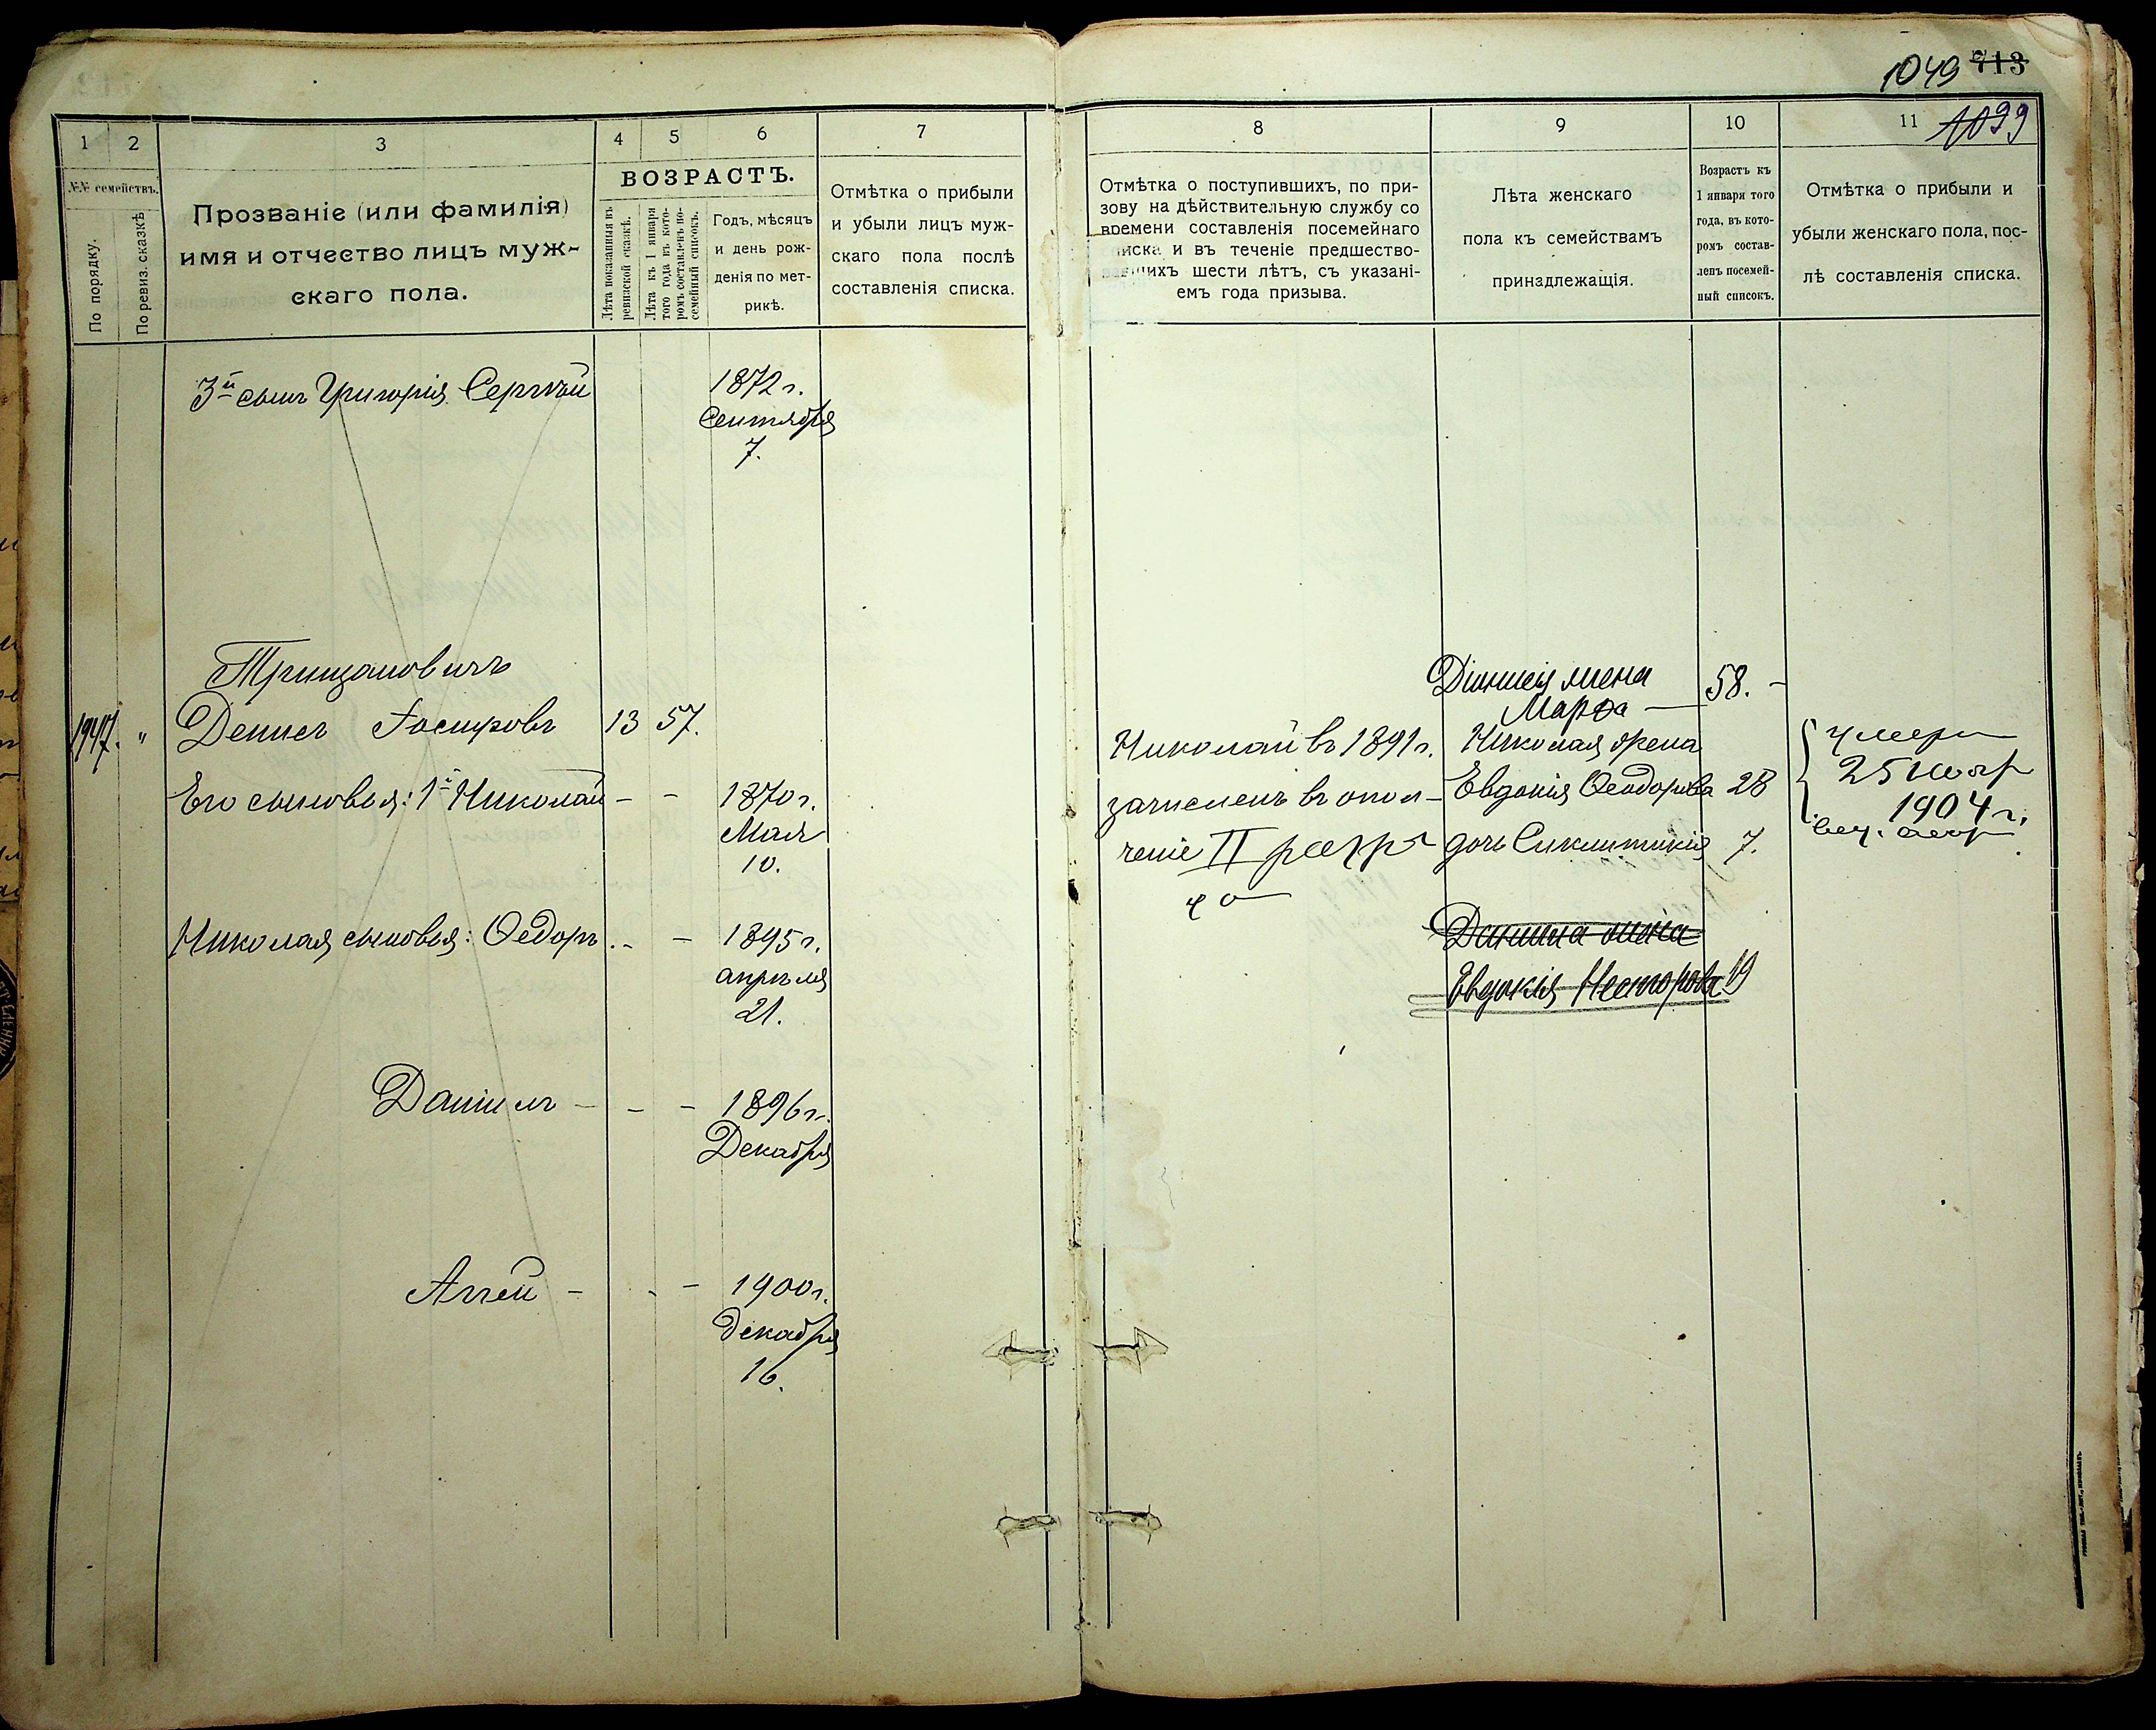 1049 713
1 2 3 4 5 6 7
№№ семействъ.
По порядку.
По ревиз. сказкѣ
Прозваніе (или фамилія)
имя и отчество лицъ муж-
скаго пола.
ВОЗРАСТЪ.
Лѣта показанныя въ
ревизской сказкѣ.
Лѣта къ 1 января
того года въ кото-
ромъ составленъ по-
семейный списокъ.
Годъ, мѣсяцъ
и день рож-
денія по мет-
рикѣ.
Отмѣтка о прибыли
и убыли лицъ муж-
скаго пола послѣ
составленія списка.
3й сынъ Григорія Сергѣй
1872 г.
Сентября
7.
1947. "
Денис Іосифовъ 13 57.
Его сыновья: 1й Николай - - 1870 г.
Мая
10.
Николая сыновья: Ѳедоръ - - 1895 г.
апрѣля
21.
Даніилъ - - - 1896 г.
Декабря
Аггей - - - 1900 г.
декабря
16.
8 9 10 11 1099
Отмѣтка о поступившихъ, по при-
зову на дѣйствительную службу со
времени составленія посемейнаго
списка и въ теченіе предшество-
вавшихъ шести лѣтъ, съ указані-
емъ года призыва.
Лѣта женскаго
пола къ семействамъ
принадлежащія.
Возрастъ къ
1 января того
года, въ кото-
ромъ состав-
ленъ посемей-
ный списокъ.
Отмѣтка о прибыли и
убыли женскаго пола, пос-
лѣ составленія списка.
Николай въ 1891 г.
зачисленъ въ опол-
ченіе II разр
Діонисія жена
Марѳа — 58. -
Николая жена
Евдокія Ѳеодорова 28
дочь Синклитикія 7.
Даніила жена
Евдокія Несторова 19
умерл
25 нояр
1904 г.